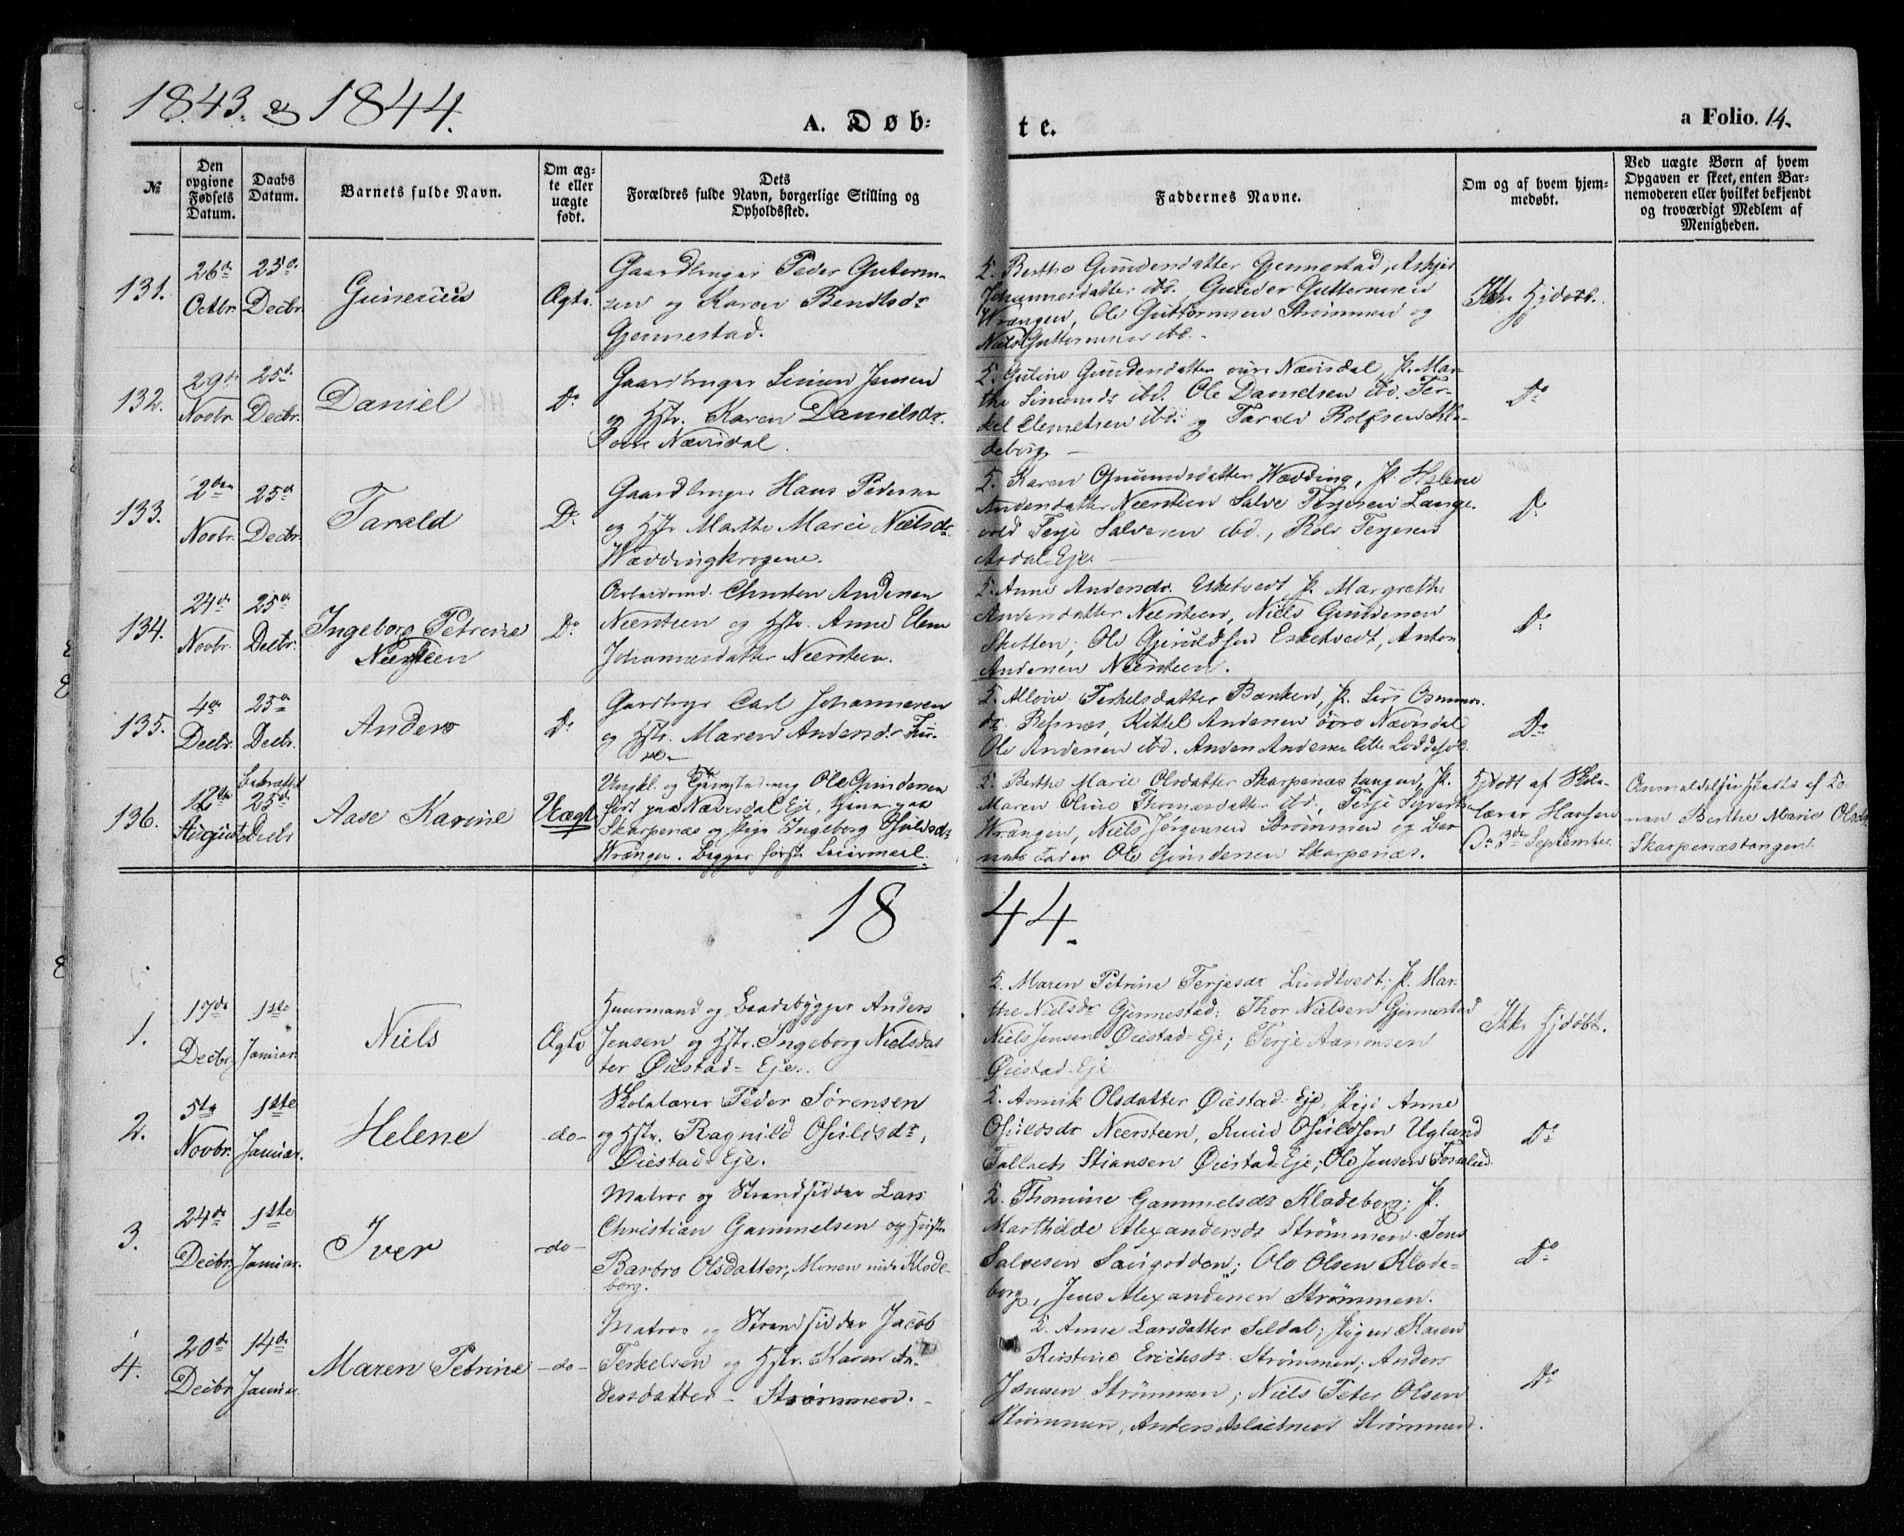 1843. og 1844.
A. Døb-
te.
a Folio. 14.
№
Den opgivne Fødsels Datum.
Daabs Datum.
Barnets fulde Navn.
Om ægte eller uægte født.
Dets Forældres fulde Navn, borgerlige Stilling og Opholdssted.
Faddernes Navne.
Om og af hvem hjemmedøbt.
Ved uægte Børn af hvem Opgaven er skeet, enten Barnemoderen eller hvilket bekjendt og troværdigt Medlem af Menigheden.
131.
26de Octbr.
25de Decbr.
Gunerius
Ægte
Gaardbruger Peder Guterm-
sen og Karen Bendtsdr
Gjennestad.
Berthe Gundersdatter Gjennestad,
Johannesdatter ibd. Gunder Guttormsen
Wrangen, Ole Guttormsen Strømmen og
Niels Guttormsen ibd.
Ikke Hjdøbt.
132.
29de Novbr.
25de Decbr.
Daniel
Do
Gaardbruger Simon Jensen
og Hstr. Karen Danielsdr.
Nævisdal.
Guline Gundersdatter Nævisdal, P. Mar-
the Simonsdr ibd. Ole Danielsen ibd. Ter-
kel Clemetsen ibd. og Tarald Rolfsen Kla-
deborg
Do
133.
2den Novbr.
25de Decbr.
Tarald
Do
Gaardbruger Hans Pedersen
og Hstr Marthe Marie Nielsdr.
Wæddingkrogene.
Karen Gundersdatter Wædding, P. Helene
Andersdatter Neersteen Salve Terjesen Lange-
vold Terje Salvesen ibd., Rolv Terjesen
Aadal Eje.
Do
134.
24de Novbr.
25de Decbr.
Ingeborg Petrine
Neersteen
Do
Arbeidsmd. Christen Andersen
Neersteen og Hstr. Anne Elene
Johannesdatter Neersteen.
Anne Andersdr. Esketvedt, P. Margrethe
Andersdatter Neersteen, Niels Gundersen
Skotten, Ole Gjeruldsen Esketvedt, Anton
Andersen Neersteen.
Do
135.
4de Decbr.
25de Decbr.
Anders
Do
Gardbrgr Carl Johannesen
og Hstr. Maren Andersdr
Terkelsdatter Banken, P. Siri Osmun-
dr. Refsnæs, Kittel Andersen øvre Nævisdal
Ole Andersen ibd. Anders Andersen lille Loddesøl
Do
136.
12te August
bekræftet 25de Decbr
Aase Karine
Uægte
Ungkl. og Ole Gundersen
født paa Nævisdal Eje, hjemme paa
Skarpenæs og Pige Ingeborg Osuldsdr
Wrangen. Begges første Leiermaal.
Berthe Marie Olsdatter Skarpenæstangen, P.
Maren Oline Thomasdatter ibd, Terje Syverts
Wrangen, Niels Jørgensen Strømmen og Bar-
nets Fader Ole Gundersen Skarpenæs.
Hjdøbt af Skole-
lærer Hansen
D. 3de September.
Anmeldelsen skeete af Ko-
nen Berthe Marie Olsdtr
Skarpenæstangen.
18
44.
1.
17de Decbr
1ste Januar
Niels
Ægte
Huusmand og Baadebygger Anders
Jensen og Hstr. Ingeborg Nielsdat-
ter Øiestad-Eje.
Maren Petrine Terjesdr Lundtvedt; P. Mar-
the Nielsdr Gjennestad; Thor Nielsen Gjennestad
Niels Jensen Øiestad-Eje; Terje Aanonsen
Øiestad-Eje
Ikke Hjdøbt.
2.
5te Novbr.
1ste Januar.
Helene
-do-
Skolelærer Peder Sørensen
og Hstr. Ragnild Osuldsdr,
Øiestad-Eje.
Annik Olsdatter Øiestad-Eje, Pige Anne
Osuldsdr Neersteen, Knud Osuldsen Ugland
Tallack Stiansen Øiestad-Eje; Ole Jensen
Do
3.
24de Decbr.
1ste Januar.
Iver
-do-
Matros og Strandsidder Lars
Christian Gammelsen og Hustr
Barbro Olsdatter, Monen nedr Klode-
borg.
Thomine Gammelsdr Klodeborg; P.
Marthilde Alexandersdr Strømmen. Jens
Salvesen Songodden; Ole Olsen Klode-
borg, Jens Alexandersen Strømmen.
Do
4.
20de Decbr
14de Januar
Maren Petrine
-do-
Matros og Strandsidder Jacob
Terkelsen og Hstr. Karen An-
dersdatter - Strømmen.
Anne Larsdatter Seldal; Pigen Karen
Kirstine Erichsdr Strømmen, Anders
Jensen Strømmen; Niels Peter Olsen
Strømmen, Anders Aslacksen Strømmen.
Do